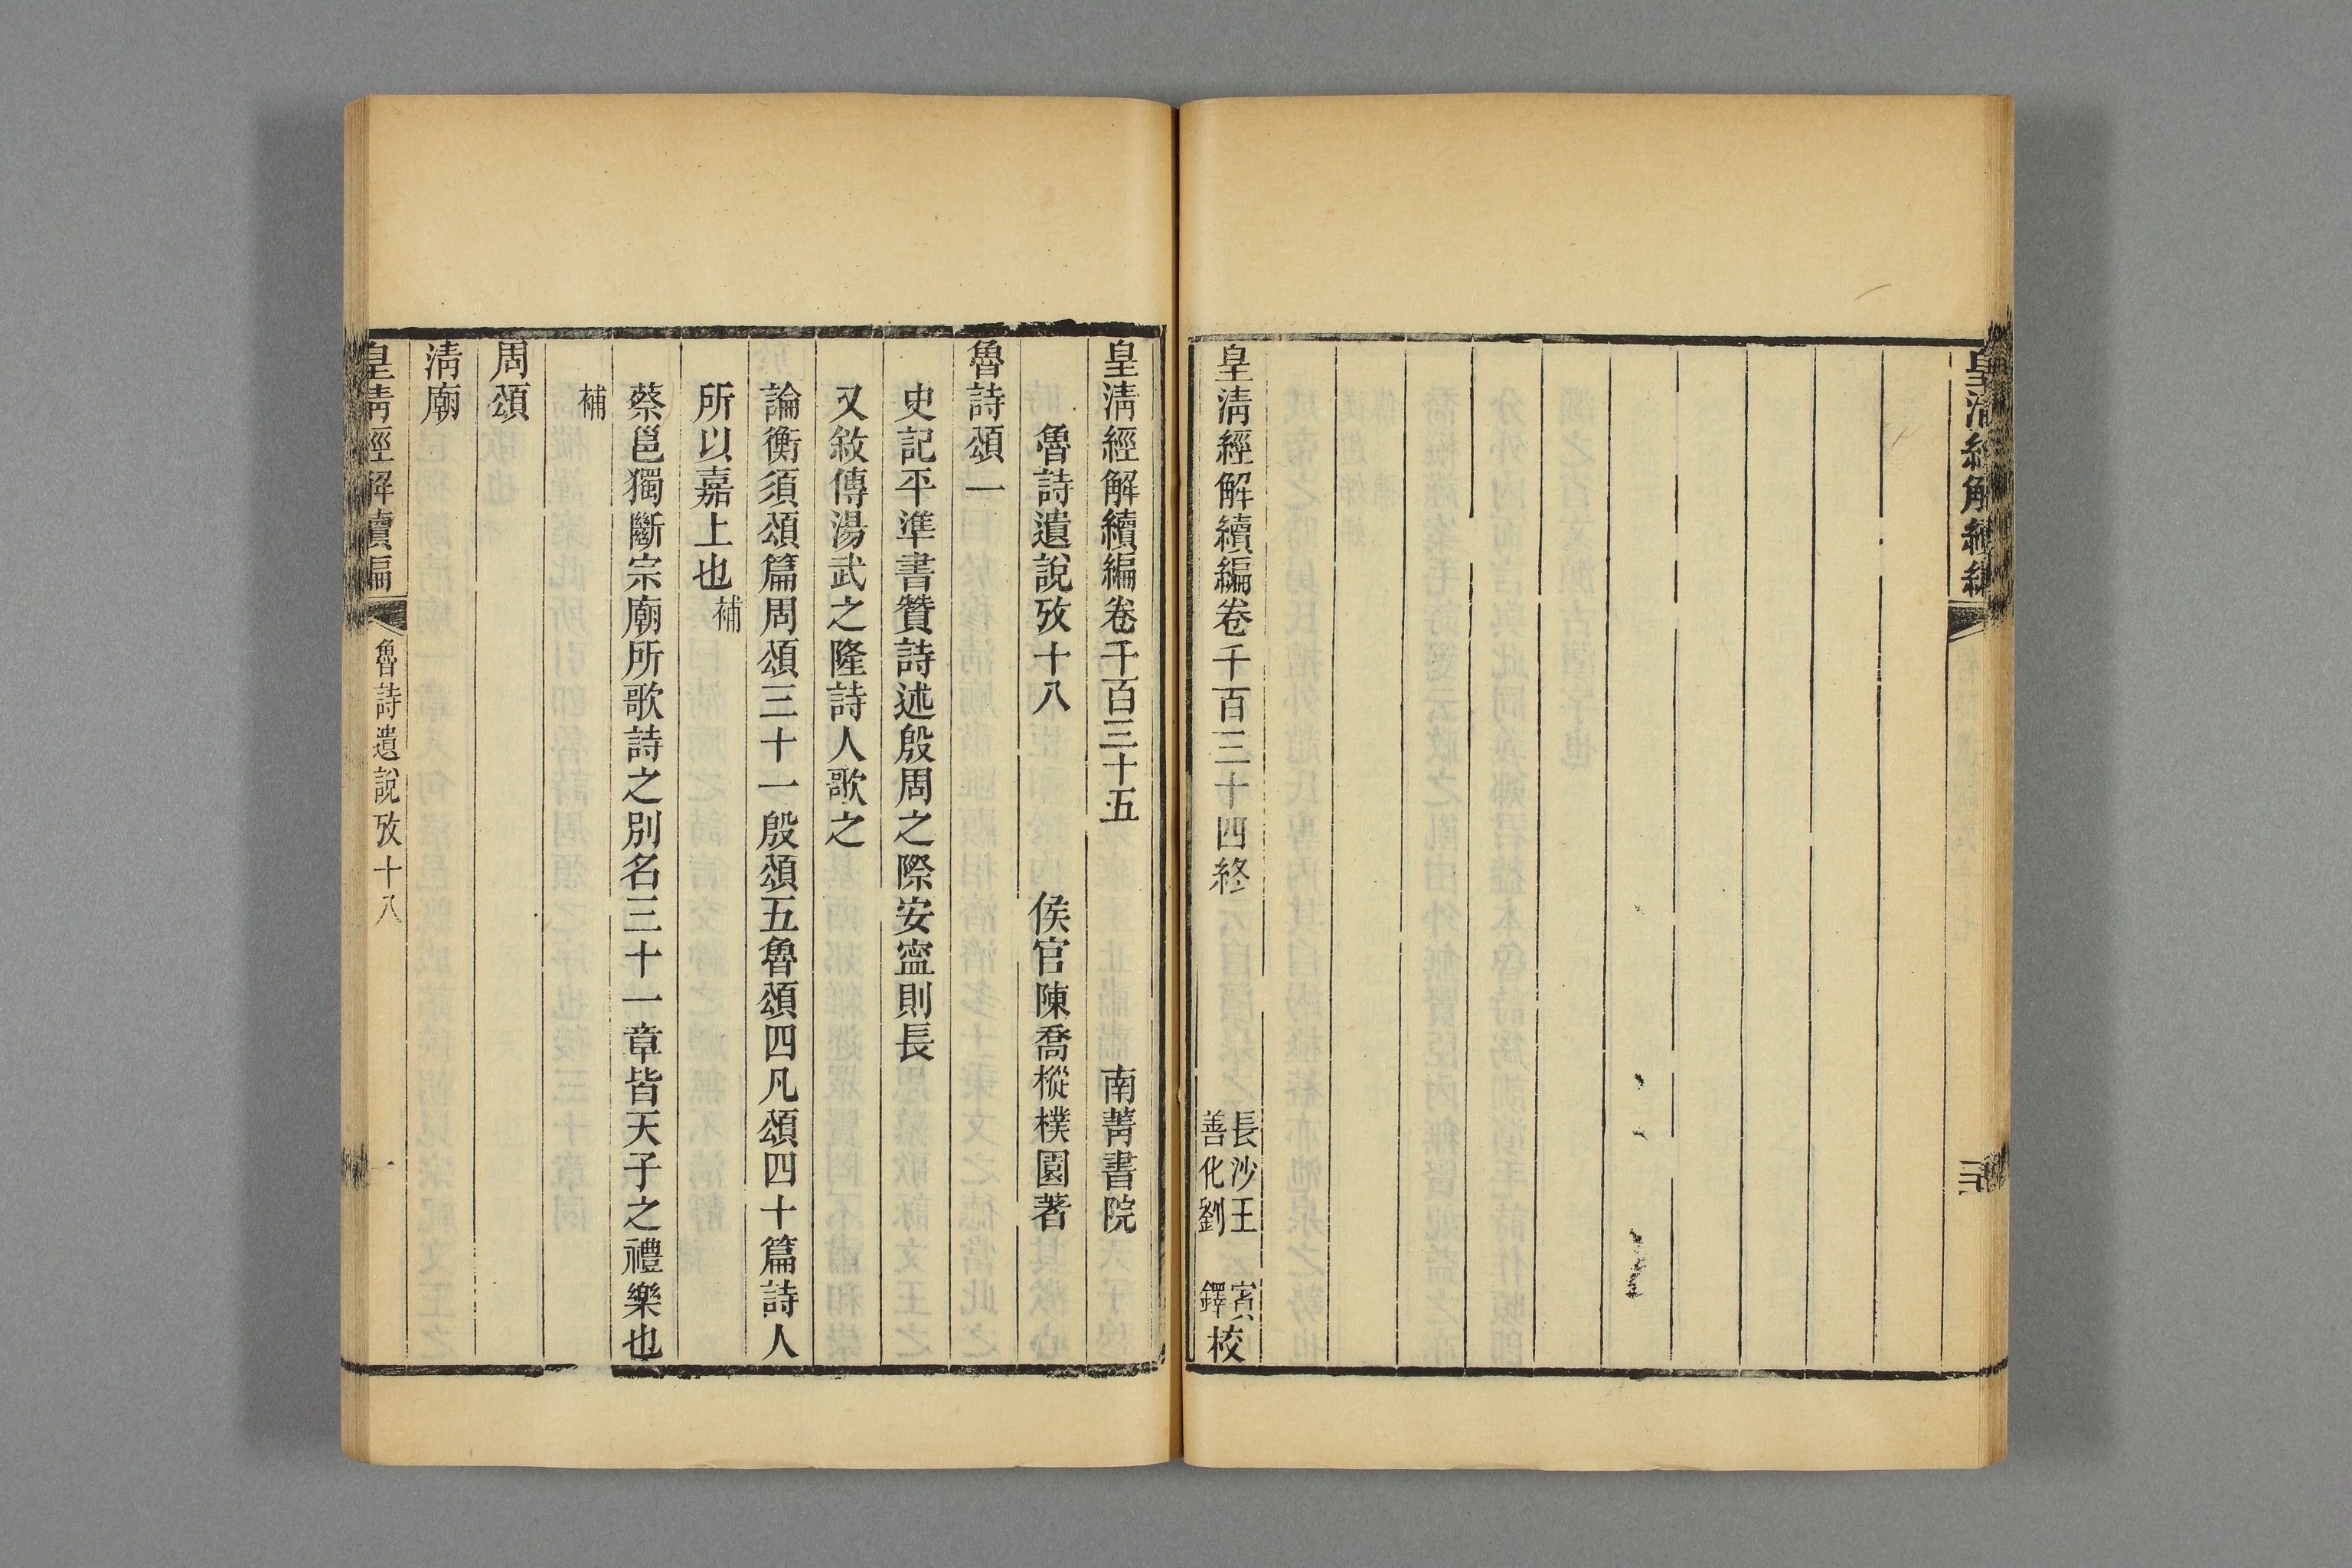 皇清經解續編
三十
皇清經解續編卷千百三十四終
長沙王 賓
善化劉 鐸
校
皇清經解續編卷千百三十五 南菁書院
魯詩遺說攷十八 侯官陳喬樅樸園著
魯詩頌一
史記平準書贊詩述殷周之際安寍則長
又敘傳湯武之隆詩人歌之
論衡須頌篇周頌三十一殷頌五魯頌四凡頌四十篇詩人
所以嘉上也補
蔡邕獨斷宗廟所歌詩之別名三十一章皆天子之禮樂也
補
周頌
清廟
皇清經解續編 魯詩遺說攷十八 一